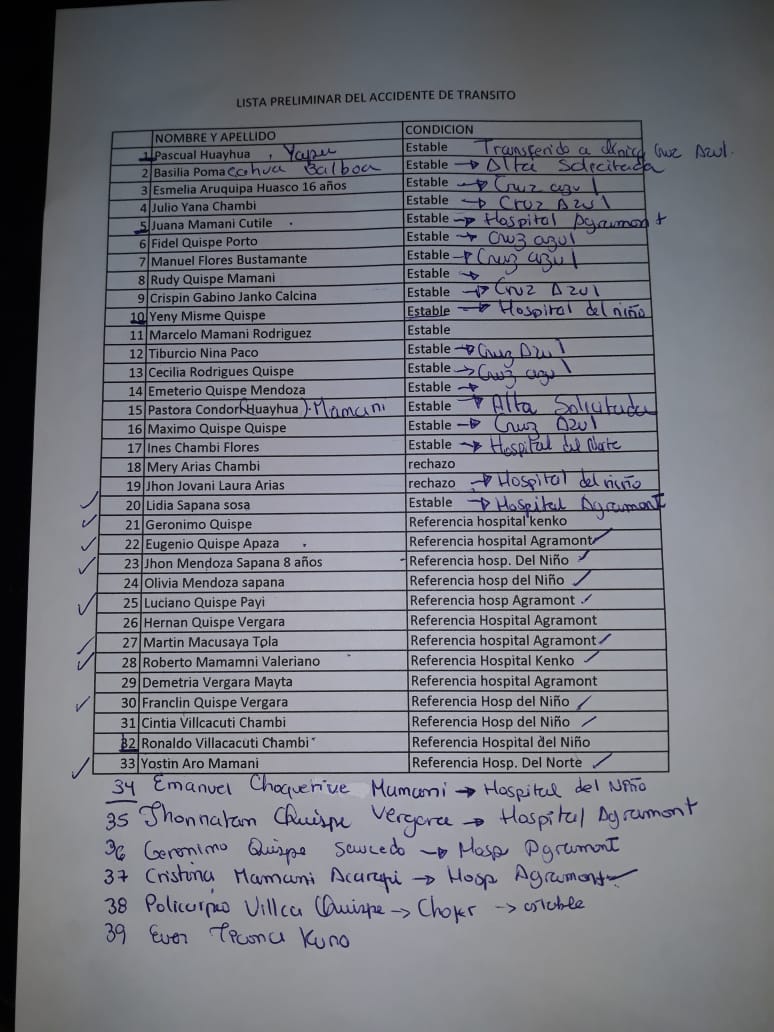 LISTA PRELIMINAR DEL ACCIDENTE DE TRANSITO
NOMBRE Y APELLIDO CONDICION
1 Pascual Huayhua , Yapu Estable Transferido a clinica Cruz Azul.
2 Basilia Poma Cahua Balboa Estable → Alta Solicitada
3 Esmelia Aruquipa Huasco 16 años Estable → Cruz azul
4 Julio Yana Chambi Estable → Cruz Azul
5 Juana Mamani Cutile . Estable → Hospital Agramont
6 Fidel Quispe Porto Estable → Cruz azul
7 Manuel Flores Bustamante Estable → Cruz azul
8 Rudy Quispe Mamani Estable →
9 Crispin Gabino Janko Calcina Estable → Cruz Azul
10 Yeny Misme Quispe Estable → Hospital del niño
11 Marcelo Mamani Rodriguez Estable
12 Tiburcio Nina Paco Estable → Cruz Azul
13 Cecilia Rodrigues Quispe Estable → Cruz azul
14 Emeterio Quispe Mendoza Estable →
15 Pastora Condori (Huayhua). Mamani Estable → Alta Solicitada
16 Maximo Quispe Quispe Estable → Cruz Azul
17 Ines Chambi Flores Estable → Hospital del Norte
18 Mery Arias Chambi rechazo
19 Jhon Jovani Laura Arias rechazo → Hospital del niño
✓ 20 Lidia Sapana sosa Estable → Hospital Agramont
✓ 21 Geronimo Quispe Referencia hospital kenko
✓ 22 Eugenio Quispe Apaza . Referencia hospital Agramont ✓
✓ 23 Jhon Mendoza Sapana 8 años - Referencia hosp. Del Niño ✓
24 Olivia Mendoza sapana Referencia hosp del Niño ✓
✓ 25 Luciano Quispe Payi Referencia hosp Agramont ✓
26 Hernan Quispe Vergara Referencia Hospital Agramont
✓ 27 Martin Macusaya Tola Referencia hospital Agramont ✓
✓ 28 Roberto Mamamni Valeriano Referencia Hospital Kenko ✓
29 Demetria Vergara Mayta Referencia hospital Agramont
✓ 30 Franclin Quispe Vergara Referencia Hosp del Niño ✓
31 Cintia Villcacuti Chambi Referencia Hosp del Niño ✓
32 Ronaldo Villacacuti Chambi Referencia Hospital del Niño
✓ 33 Yostin Aro Mamani Referencia Hosp. Del Norte ✓
34 Emanuel Mamani → Hospital del Niño
35 Jhonnatan Quispe Vergara → Hospital Agramont
36 Geronimo Quispe Saucedo → Hosp Agramont
37 Cristina Mamani → Hosp Agramont ✓
38 Policarpio Villca Quispe → Chofer → estable
39 Ever Kuno